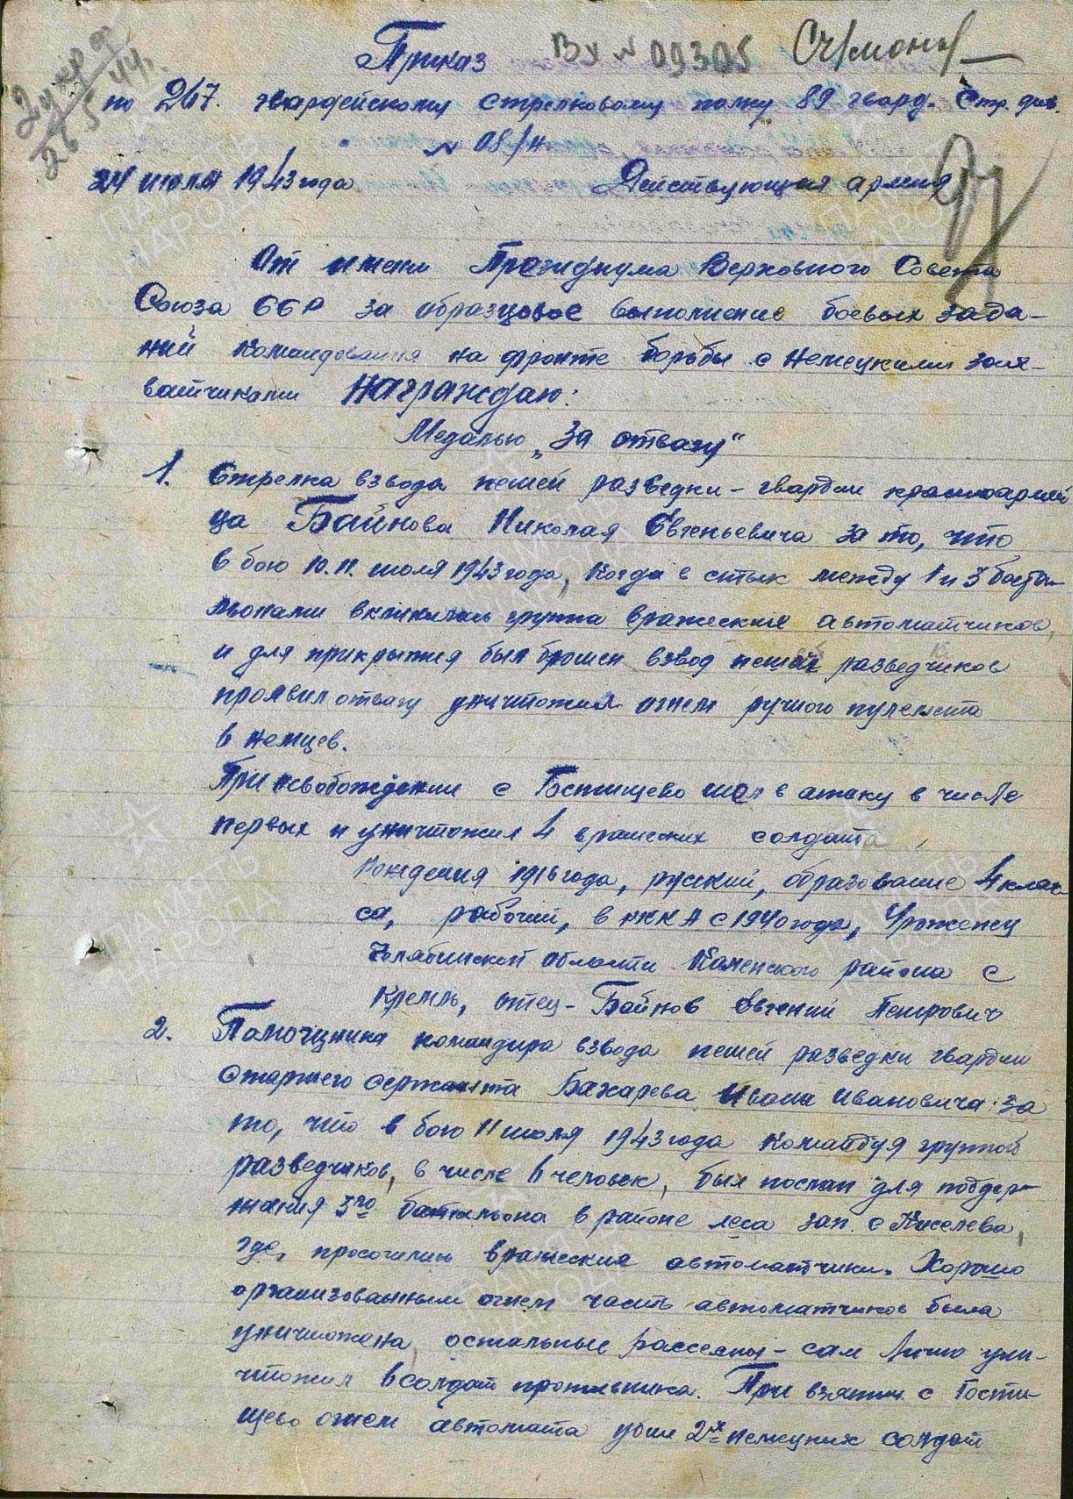 Вх № 09305
Приказ
по 267. гвардейскому стрелковому полку 89 гвард. Стр. див.
№ 08/н
24 июля 1943 года Действующая армия
От имени Президиума Верховного Совета
Союза ССР за образцовое выполнение боевых зада-
ний командования на фронте борьбы с немецкими зах-
ватчиками Награждаю:
Медалью „За отвагу"
1. Стрелка взвода пешей разведки – гвардии красноармей
ца Байнова Николая Евгеньевича за то, что
в бою 10.11. июля 1943 года, когда в стык между 1 и 3 бата-
льонами вклинилась группа вражеских автоматчиков,
и для прикрытия был брошен взвод пешей разведчиков
проявил отвагу уничтожил огнем ручного пулемета
6 немцев.
При освобождении с Гостищево шел в атаку в числе
первых и уничтожил 4 вражеских солдата
Рождения 1916 года, русский, образование 4 клас-
са, рабочий, в РККА с 1940 года, Уроженец
Челябинской области Каменского района с
Кремль, отец – Байнов Евгений Петрович
2. Памощника командира взвода пешей разведки гвардии
Старшего сержанта Бахарева Ивана Ивановича за
то, что в бою 11 июля 1943 года командуя группой
разведчиков, в числе 6 человек, был послан для поддер-
жания 3го батальона в районе леса зап. с Киселева,
где, просочились вражеские автоматчики. Хорошо
организованным огнем часть автоматчиков была
уничтожена, остальные рассеяны – сам лично уни-
чтожил 6 солдат противника. При взятии с Гости-
щево огнем автомата убил 2х немецких солдат
ПАМЯТЬ
НАРОДА